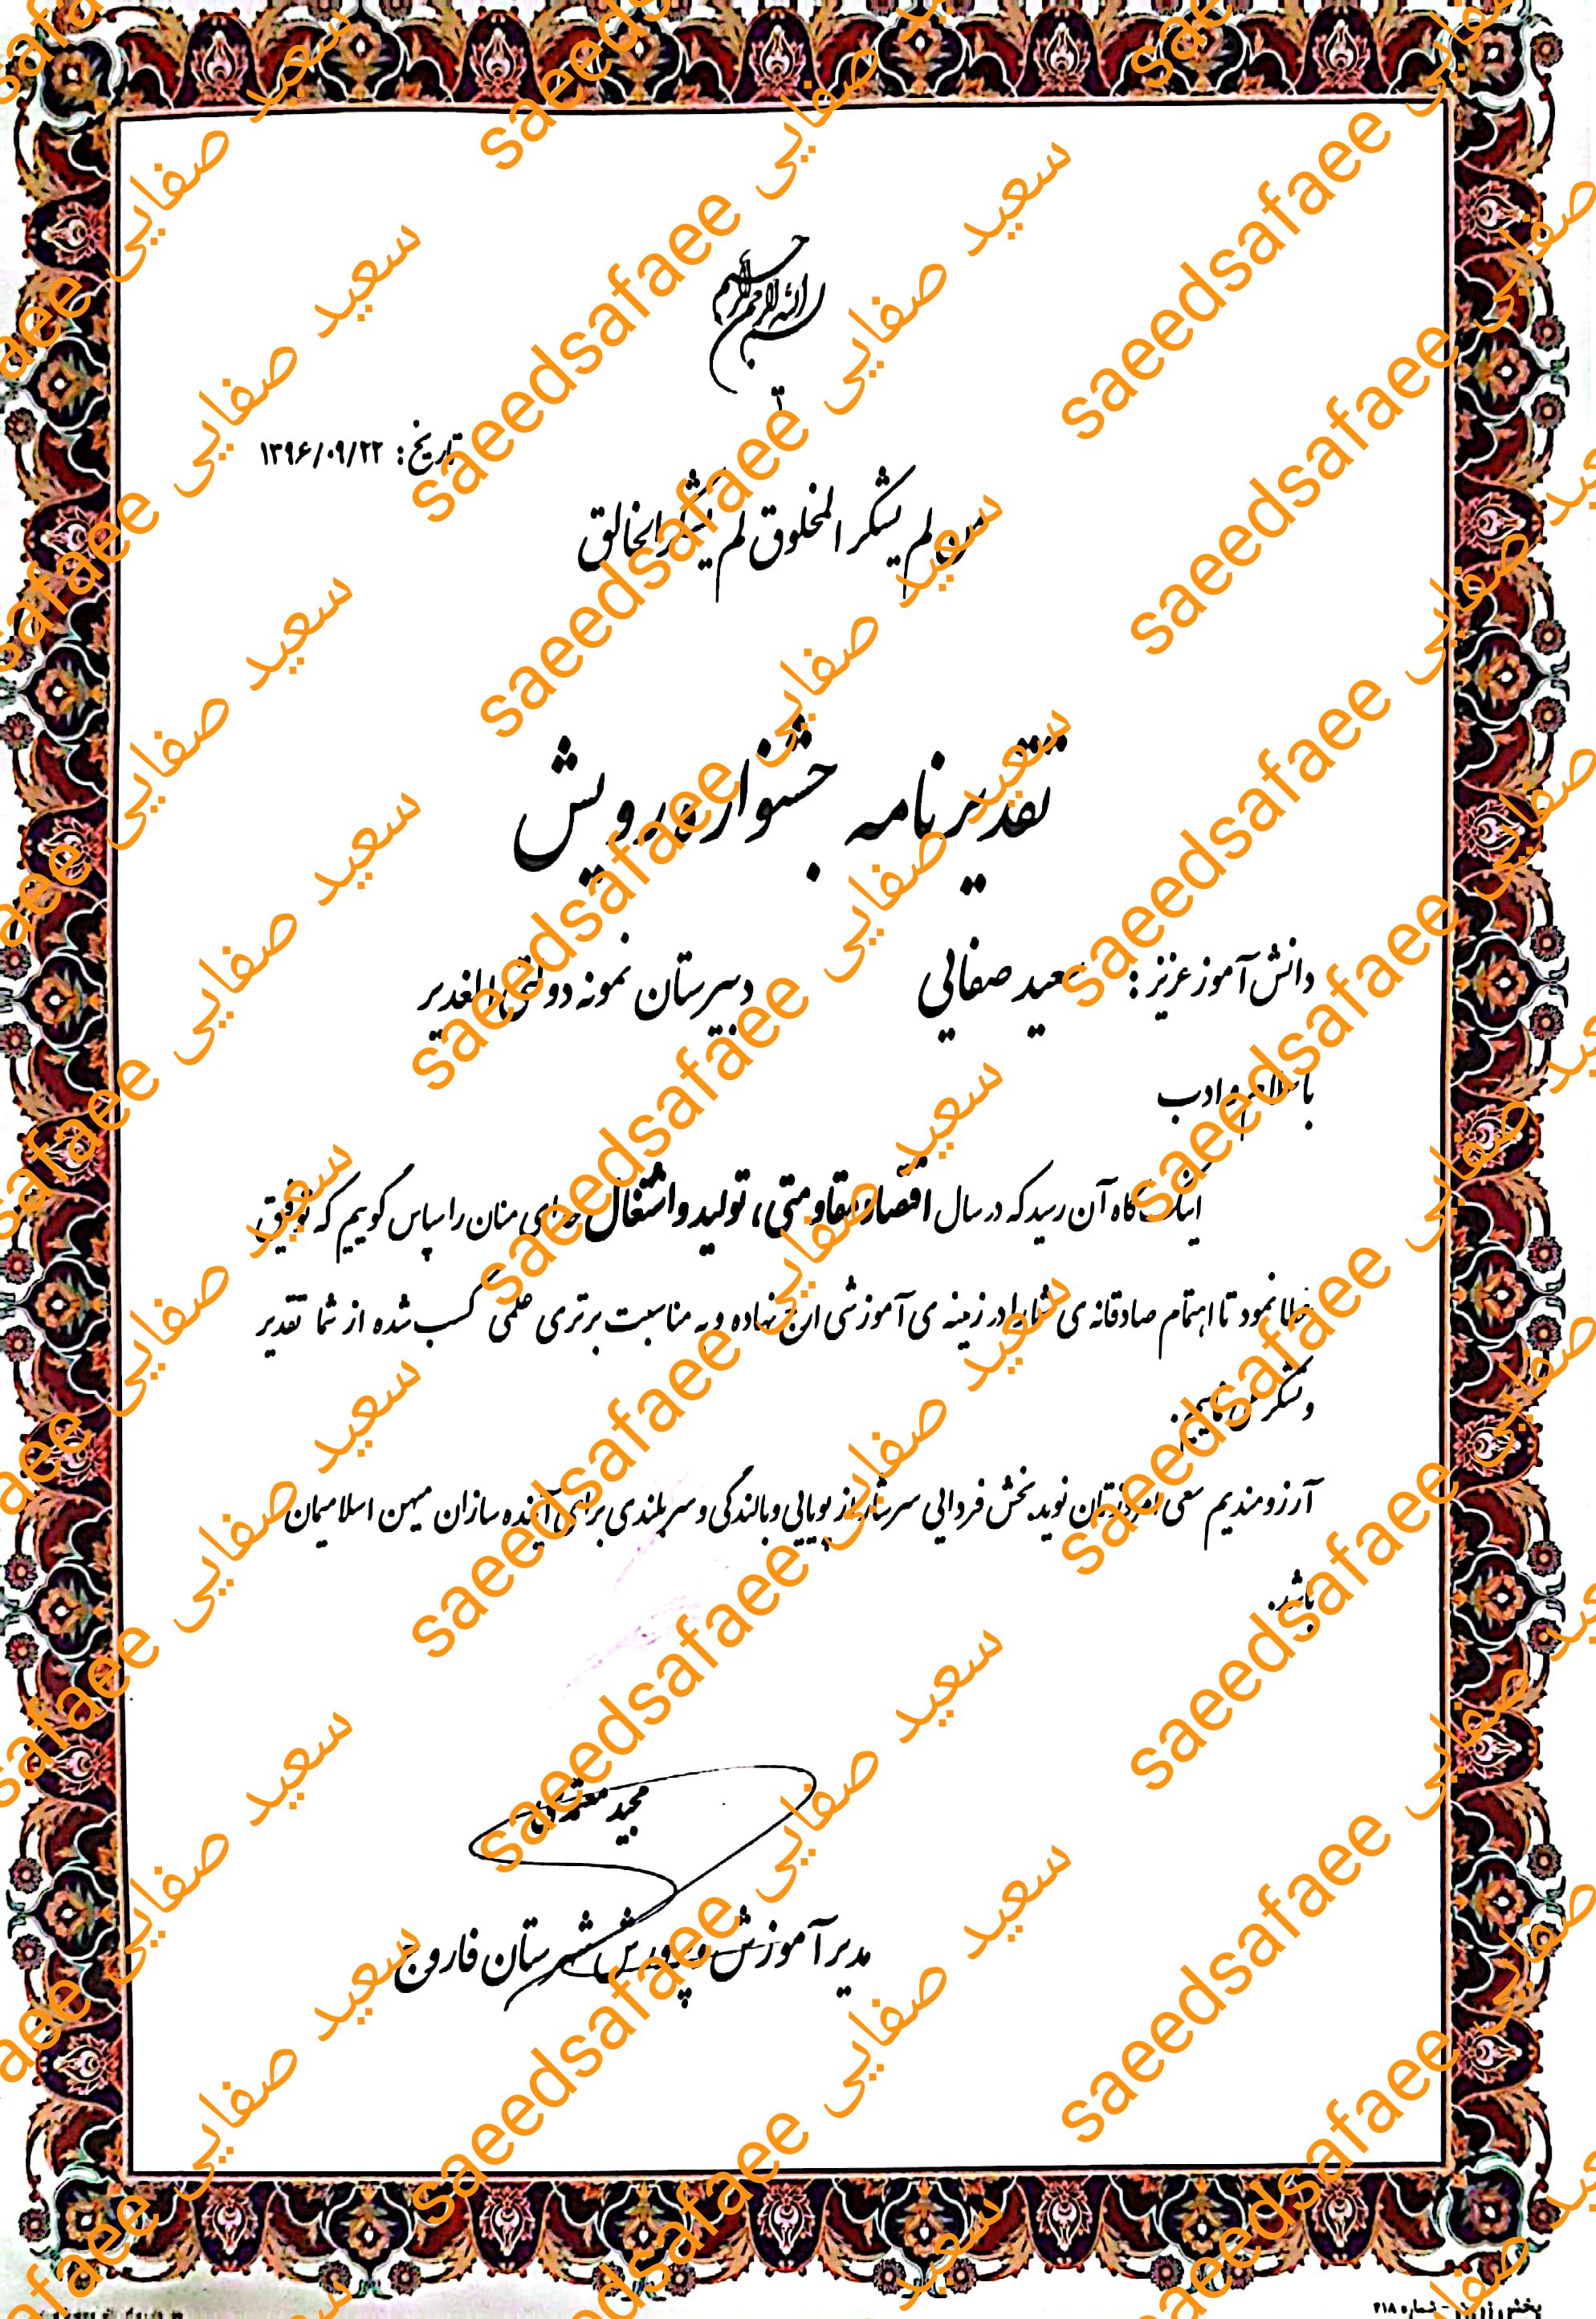 بسم الله الرحمن الرحیم
تاریخ: ۱۳۹۶/۰۹/۲۲
من لم یشکر المخلوق لم یشکر الخالق
تقدیرنامه جشنواره رویش
دانش آموز عزیز: سعید صفایی دبیرستان نمونه دولتی الغدیر
با سلام و ادب
اینک گاه آن رسید که در سال اقتصاد مقاومتی، تولید و اشتغال خدای منان را سپاس گوییم که توفیق
عطا نمود تا اهتمام صادقانه ی شما را در زمینه ی آموزشی ارج نهاده و به مناسبت برتری علمی کسب شده از شما تقدیر
و تشکر می نماییم.
آرزومندیم سعی امروزتان نوید بخش فردایی سرشار از پویایی و بالندگی و سربلندی برای آینده سازان میهن اسلامیمان
باشد.
مجید معتمدی
مدیر آموزش و پرورش شهرستان فاروج
سعید صفایی saeedsafaee